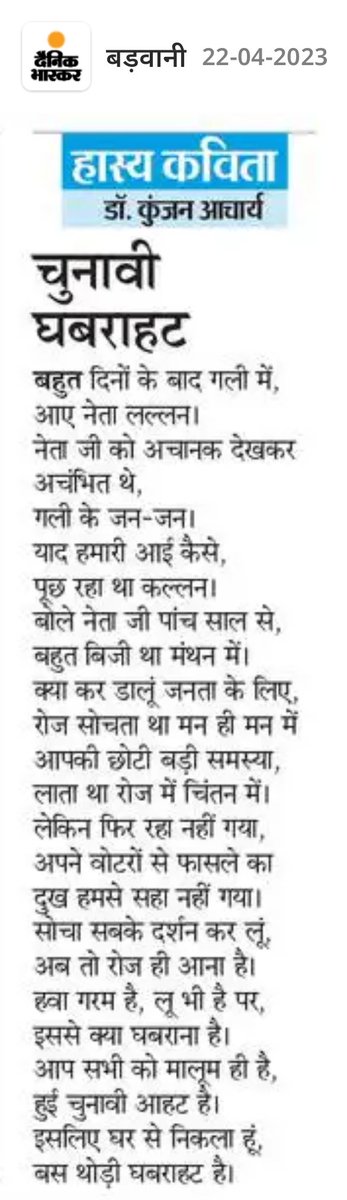 दैनिक
भास्कर
बड़वानी 22-04-2023
हास्य कविता
डॉ. कुंजन आचार्य
चुनावी
घबराहट
बहुत दिनों के बाद गली में,
आए नेता लल्लन।
नेता जी को अचानक देखकर
अचंभित थे,
गली के जन-जन।
याद हमारी आई कैसे,
पूछ रहा था कल्लन।
बोले नेता जी पांच साल से,
बहुत बिजी था मंथन में।
क्या कर डालूं जनता के लिए,
रोज सोचता था मन ही मन में
आपकी छोटी बड़ी समस्या,
लाता था रोज में चिंतन में।
लेकिन फिर रहा नहीं गया,
अपने वोटरों से फासले का
दुख हमसे सहा नहीं गया।
सोचा सबके दर्शन कर लूं,
अब तो रोज ही आना है।
हवा गरम है, लू भी है पर,
इससे क्या घबराना है।
आप सभी को मालूम ही है,
हुई चुनावी आहट है।
इसलिए घर से निकला हूं,
बस थोड़ी घबराहट है।